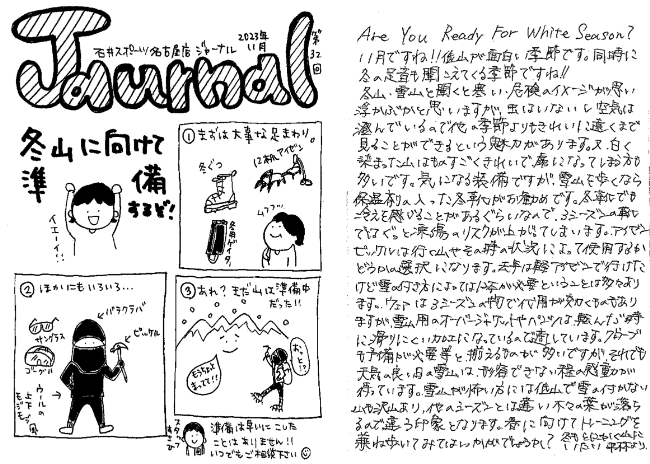 Journal
石井スポーツ名古屋店 ジャーナル
2023年
11月
第32回
冬山に向けて
準備
するぞ!
イエーイ!!
① まずは大事な足まわり。
冬ぐつ
12本爪アイゼン
冬用ゲイター
ムフフッ
② ほかにもいろいろ...
バラクラバ
サングラス
ゴーグル
ピッケル
ウールの
上下
③ あれ?まだ山は準備中
だった!!
もうちょい
まって!!
おっと!?
準備は早いにこした
ことはありません!!
いつでもご相談下さい
Are You Ready For White Season?
11月ですね!!低山が面白い季節です。同時に
冬の足音も聞こえてくる季節ですね!!
冬山・雪山と聞くと寒い、危険のイメージが思い
浮かぶかと思いますが、虫はいないし空気は
澄んでいるので他の季節よりもきれいに遠くまで
見ることができるという魅力があります。又、白く
染まった山はものすごくきれいで、虜になってしまう方も
多いです。気になる装備ですが、雪山を歩くなら
保温剤の入った冬靴がお勧めです。冬靴でも
冷えを感じることがあるぐらいなので、3シーズンの靴
だと凍傷のリスクが上がってしまいます。アイゼン
ピッケルは行く山やその時の状況によって使用するか
どうかの選択になります。去年は軽アイゼンで行けた
けど雪の付き方によっては12本爪が必要ということは多々あり
ます。ウェアは3シーズンの物で代用が効くものもあり
ますが、雪山用のオーバージャケットやパンツは、転んだ時
に滑りにくい加工になっているので適しています。グローブ
も予備が必要等と揃えるものが多いですが、それでも
天気の良い日の雪山は、形容できない程の感動が
待っています。雪山が怖い方には低山で雪の付かない
山や沢山より、他のシーズンとは違い木々の葉が落ち
るので違う印象となります。春に向けてトレーニングを
兼ね歩いてみてはいかがでしょうか?